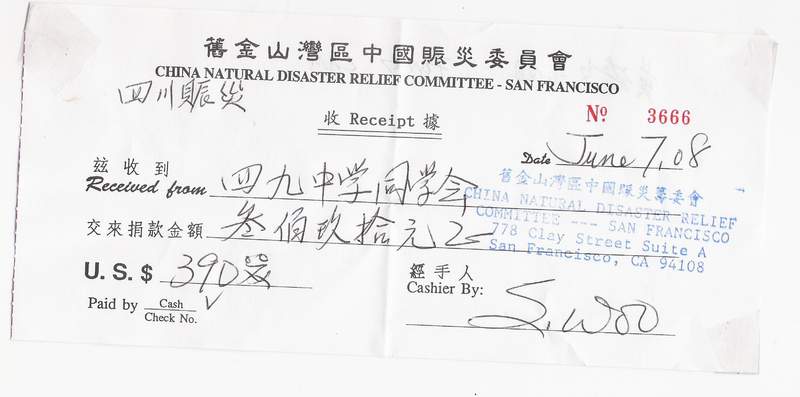 舊金山灣區中國賑災委員會
CHINA NATURAL DISASTER RELIEF COMMITTEE - SAN FRANCISCO
四川賑災
收 Receipt 據
Nº 3666
Date June 7, 08
茲收到
Received from 四九中学同学会
舊金山灣區中國賑災籌委會
CHINA NATURAL DISASTER RELIEF
COMMITTEE --- SAN FRANCISCO
778 Clay Street Suite A
San Francisco, CA 94108
交來捐款金額 叁佰玖拾元
U.S.$ 390
經手人
Cashier By: S. Woo
Paid by Cash
Check No.